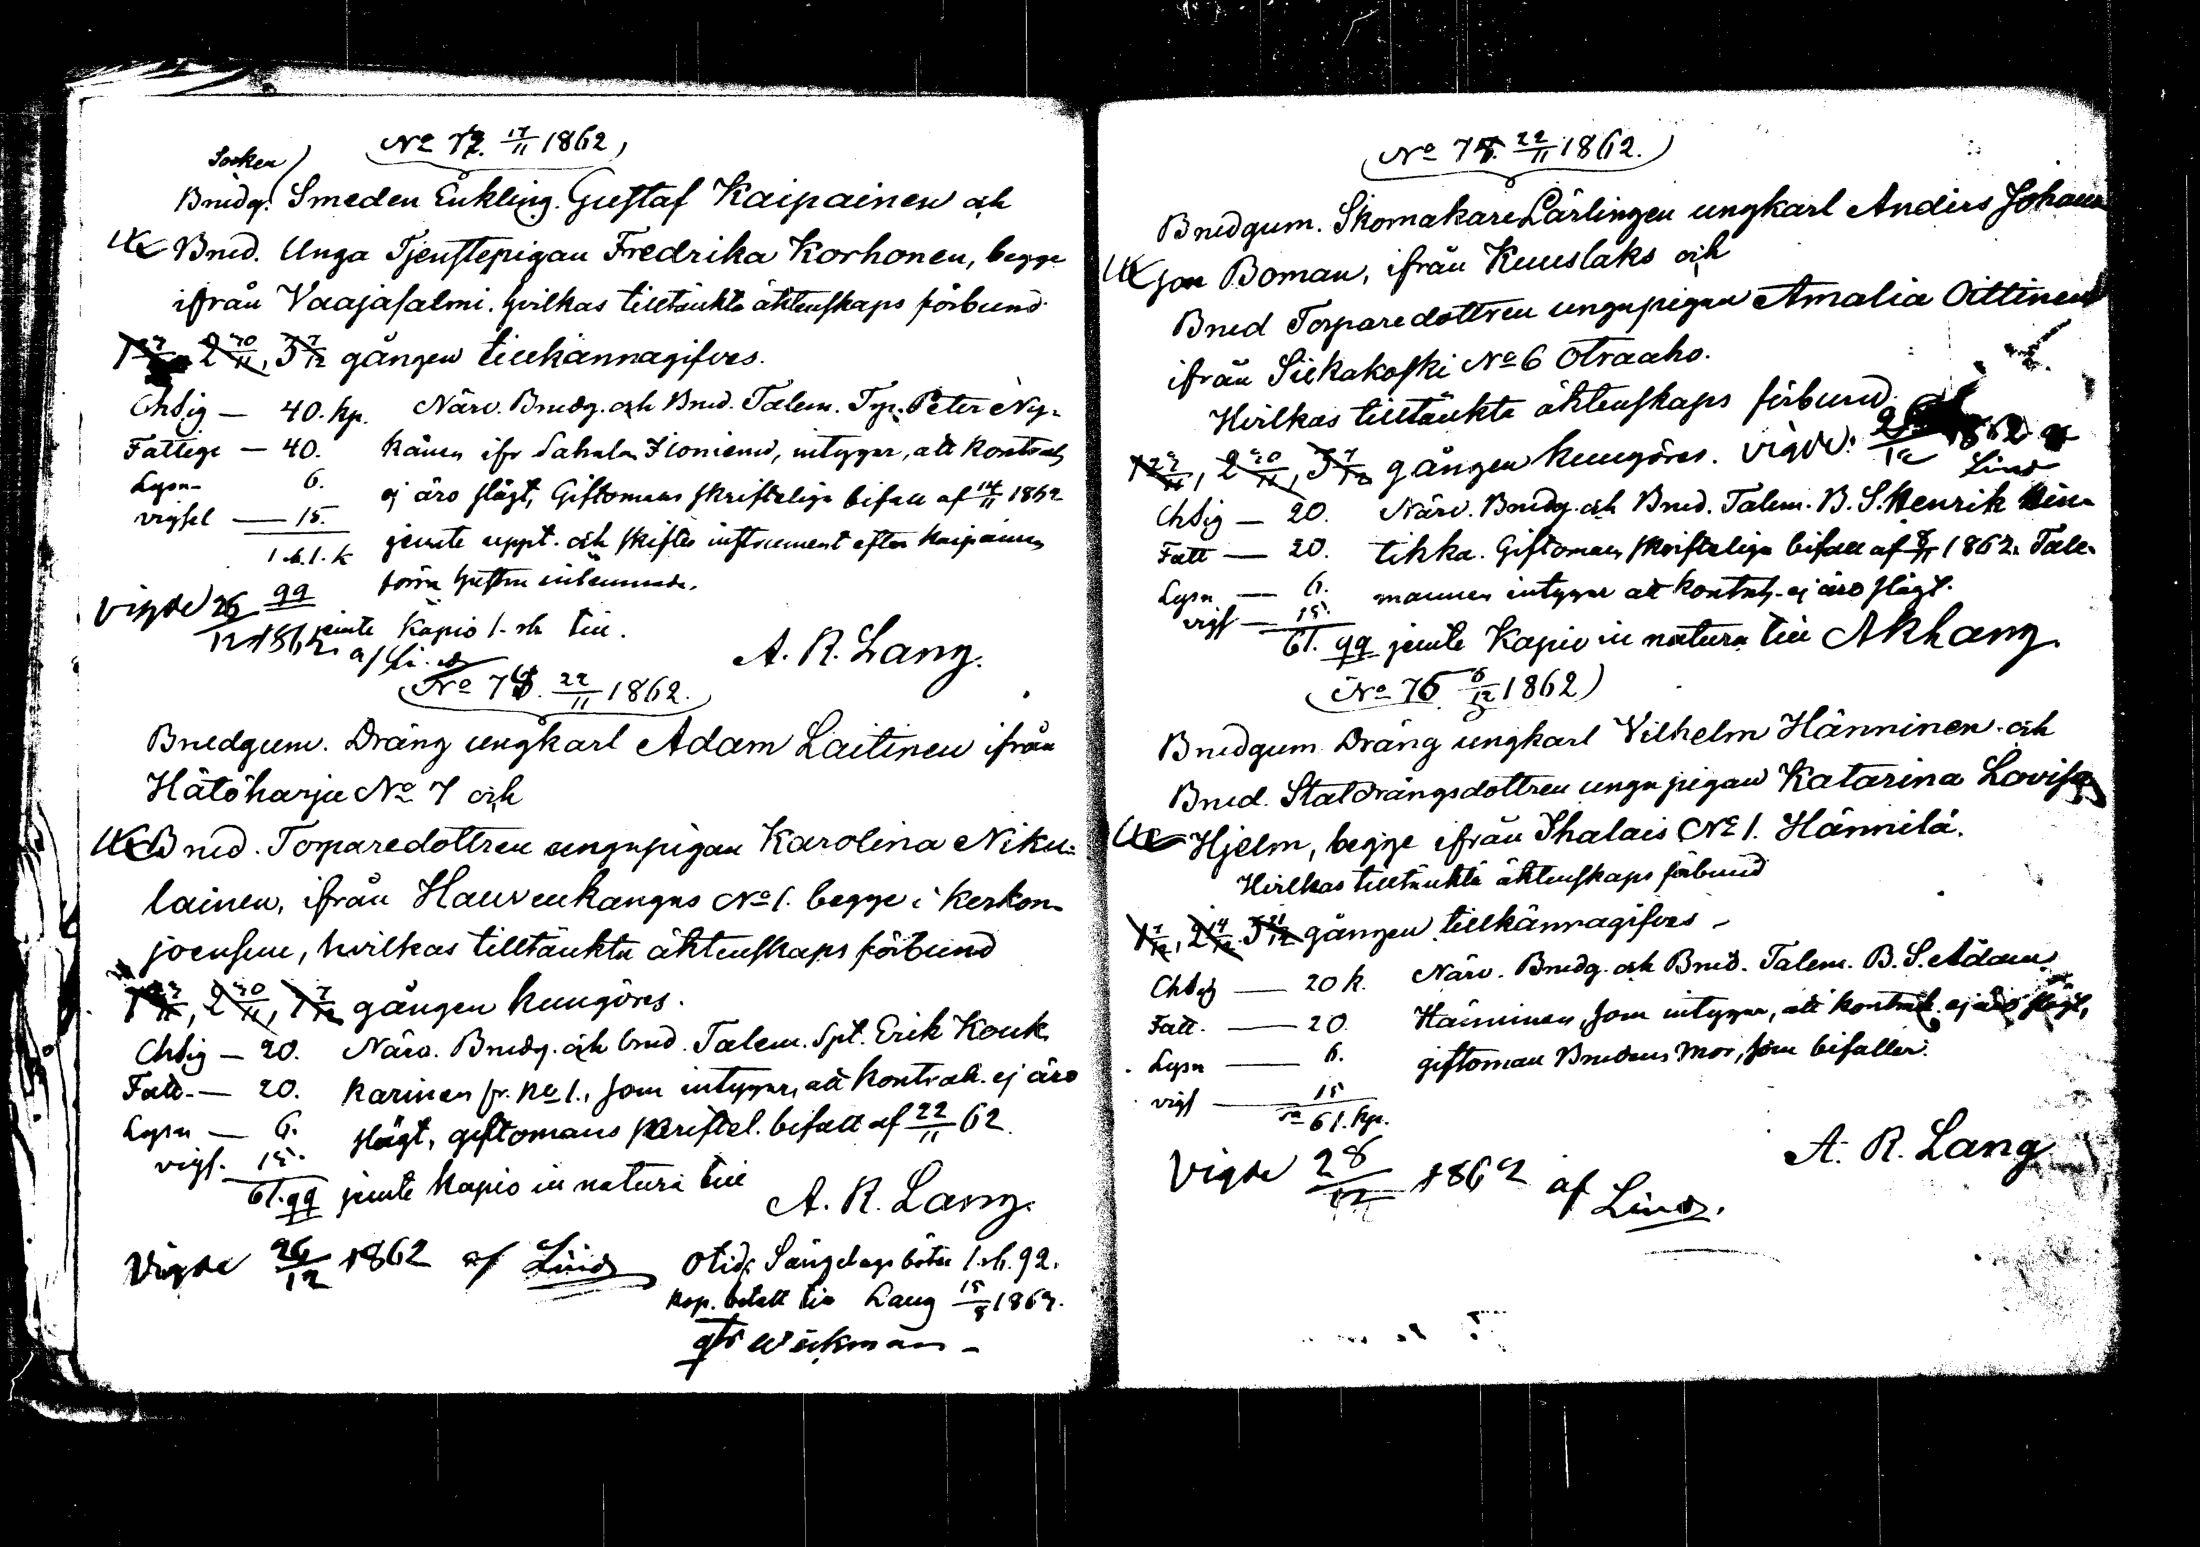 No 72. 17/11 1862,
Socken
Brudg. Smeden Enkling. Gustaf Kaipainen och
Brud. Unga Tjenstepigan Fredrika Korhonen, begge
ifrån Vaajasalmi. hvilkas tilltänkta äktenskaps förbund
2 30/11, 3 7/12 gången tillkännagifves.
Chdig — 40. kp. Närv. Brudg. och Brud. Talem. Trp. Peter Ny-
Fattige — 40. känen ifr Sahala intygar, att kontrah
Lysn 6. ej äro slägt, Giftomans skriftliga bifall af 14/11 1862
vigsel — 15. jemte uppt. och skiftes instrument efter Kaipainens
1.rb.1.k förra hustru inlemnade.
Vigde 26/12 1862 af Lind
99 jemte Kapio 1. rb till.
A. R. Lang.
No 73. 22/11 1862.
Brudgum. Dräng ungkarl Adam Laitinen ifrån
Hätöharju No 7 och
Brud. Torparedottren ungapigan Karolina Niku-
lainen, ifrån Hauvenkangas No 1. begge i Kerkon-
joensuu, hvilkas tilltänkta äktenskaps förbund
1 23/11, 2 30/11, 7/12 gången kungöres.
Chdig — 20. Närv. Brudg. och brud. Talem. Spt. Erik Kouk
Fatt. — 20. karinen fr. No 1., som intygar, att kontrah. ej äro
Lysn — 6. slägt, giftomans skriftel. bifall af 22/11 62.
vigs. 15. jemte kapio in natura till
61. 99
A. R. Lang.
Vigde 26/12 1862 af Lind
Otid. Sängelags böter 1.rb. 92.
kop. betalt till Lang 15/8 1862.
Wickman
No 74. 22/11 1862.
Brudgum. Skomakare Lärlingen ungkarl Anders Johans
son Boman, ifrån Kuuslaks och
Brud Torparedottren ungapigan Amalia Oittinen
ifrån Siekakoski No 6 Otraaho.
Hvilkas tilltänkta äktenskaps förbund.
1 23/11, 2 30/11, 3 7/12 gången kungöres. Vigde: 1862 af
Lind
Chdig — 20. Närv. Brudg. och Brud. Talem. B. S. Henrik Hin-
Fatt — 20. tikka. Giftomans skriftliga bifall af 8/11 1862. Tale-
Lysn — 6. mannen intygar att kontrah. ej äro slägt.
vigs — 15.
61. 99 jemte Kapio in natura till A R Lang.
No 75 6/12 1862
Brudgum Dräng ungkarl Vilhelm Hänninen och
Brud. Staldrängsdottren unga pigan Katarina Lovisa
Hjelm, begge ifrån Ihalais No 1. Hännilä.
Hvilkas tilltänkta äktenskaps förbund
1 7/12, 2 14/12 3 21/12 gången tillkännagifves —
Chdig — 20 k. Närv. Brudg. och Brud. Talem. B. S. Adam
Fatt. — 20. Hänninen, som intygar, att kontrah. ej äro slägt,
Lysn — 6. giftoman Brudens Mor, som bifaller.
vigs — 15
Sa 61. kp.
A. R. Lang
Vigde 28/12 1862 af Lind.